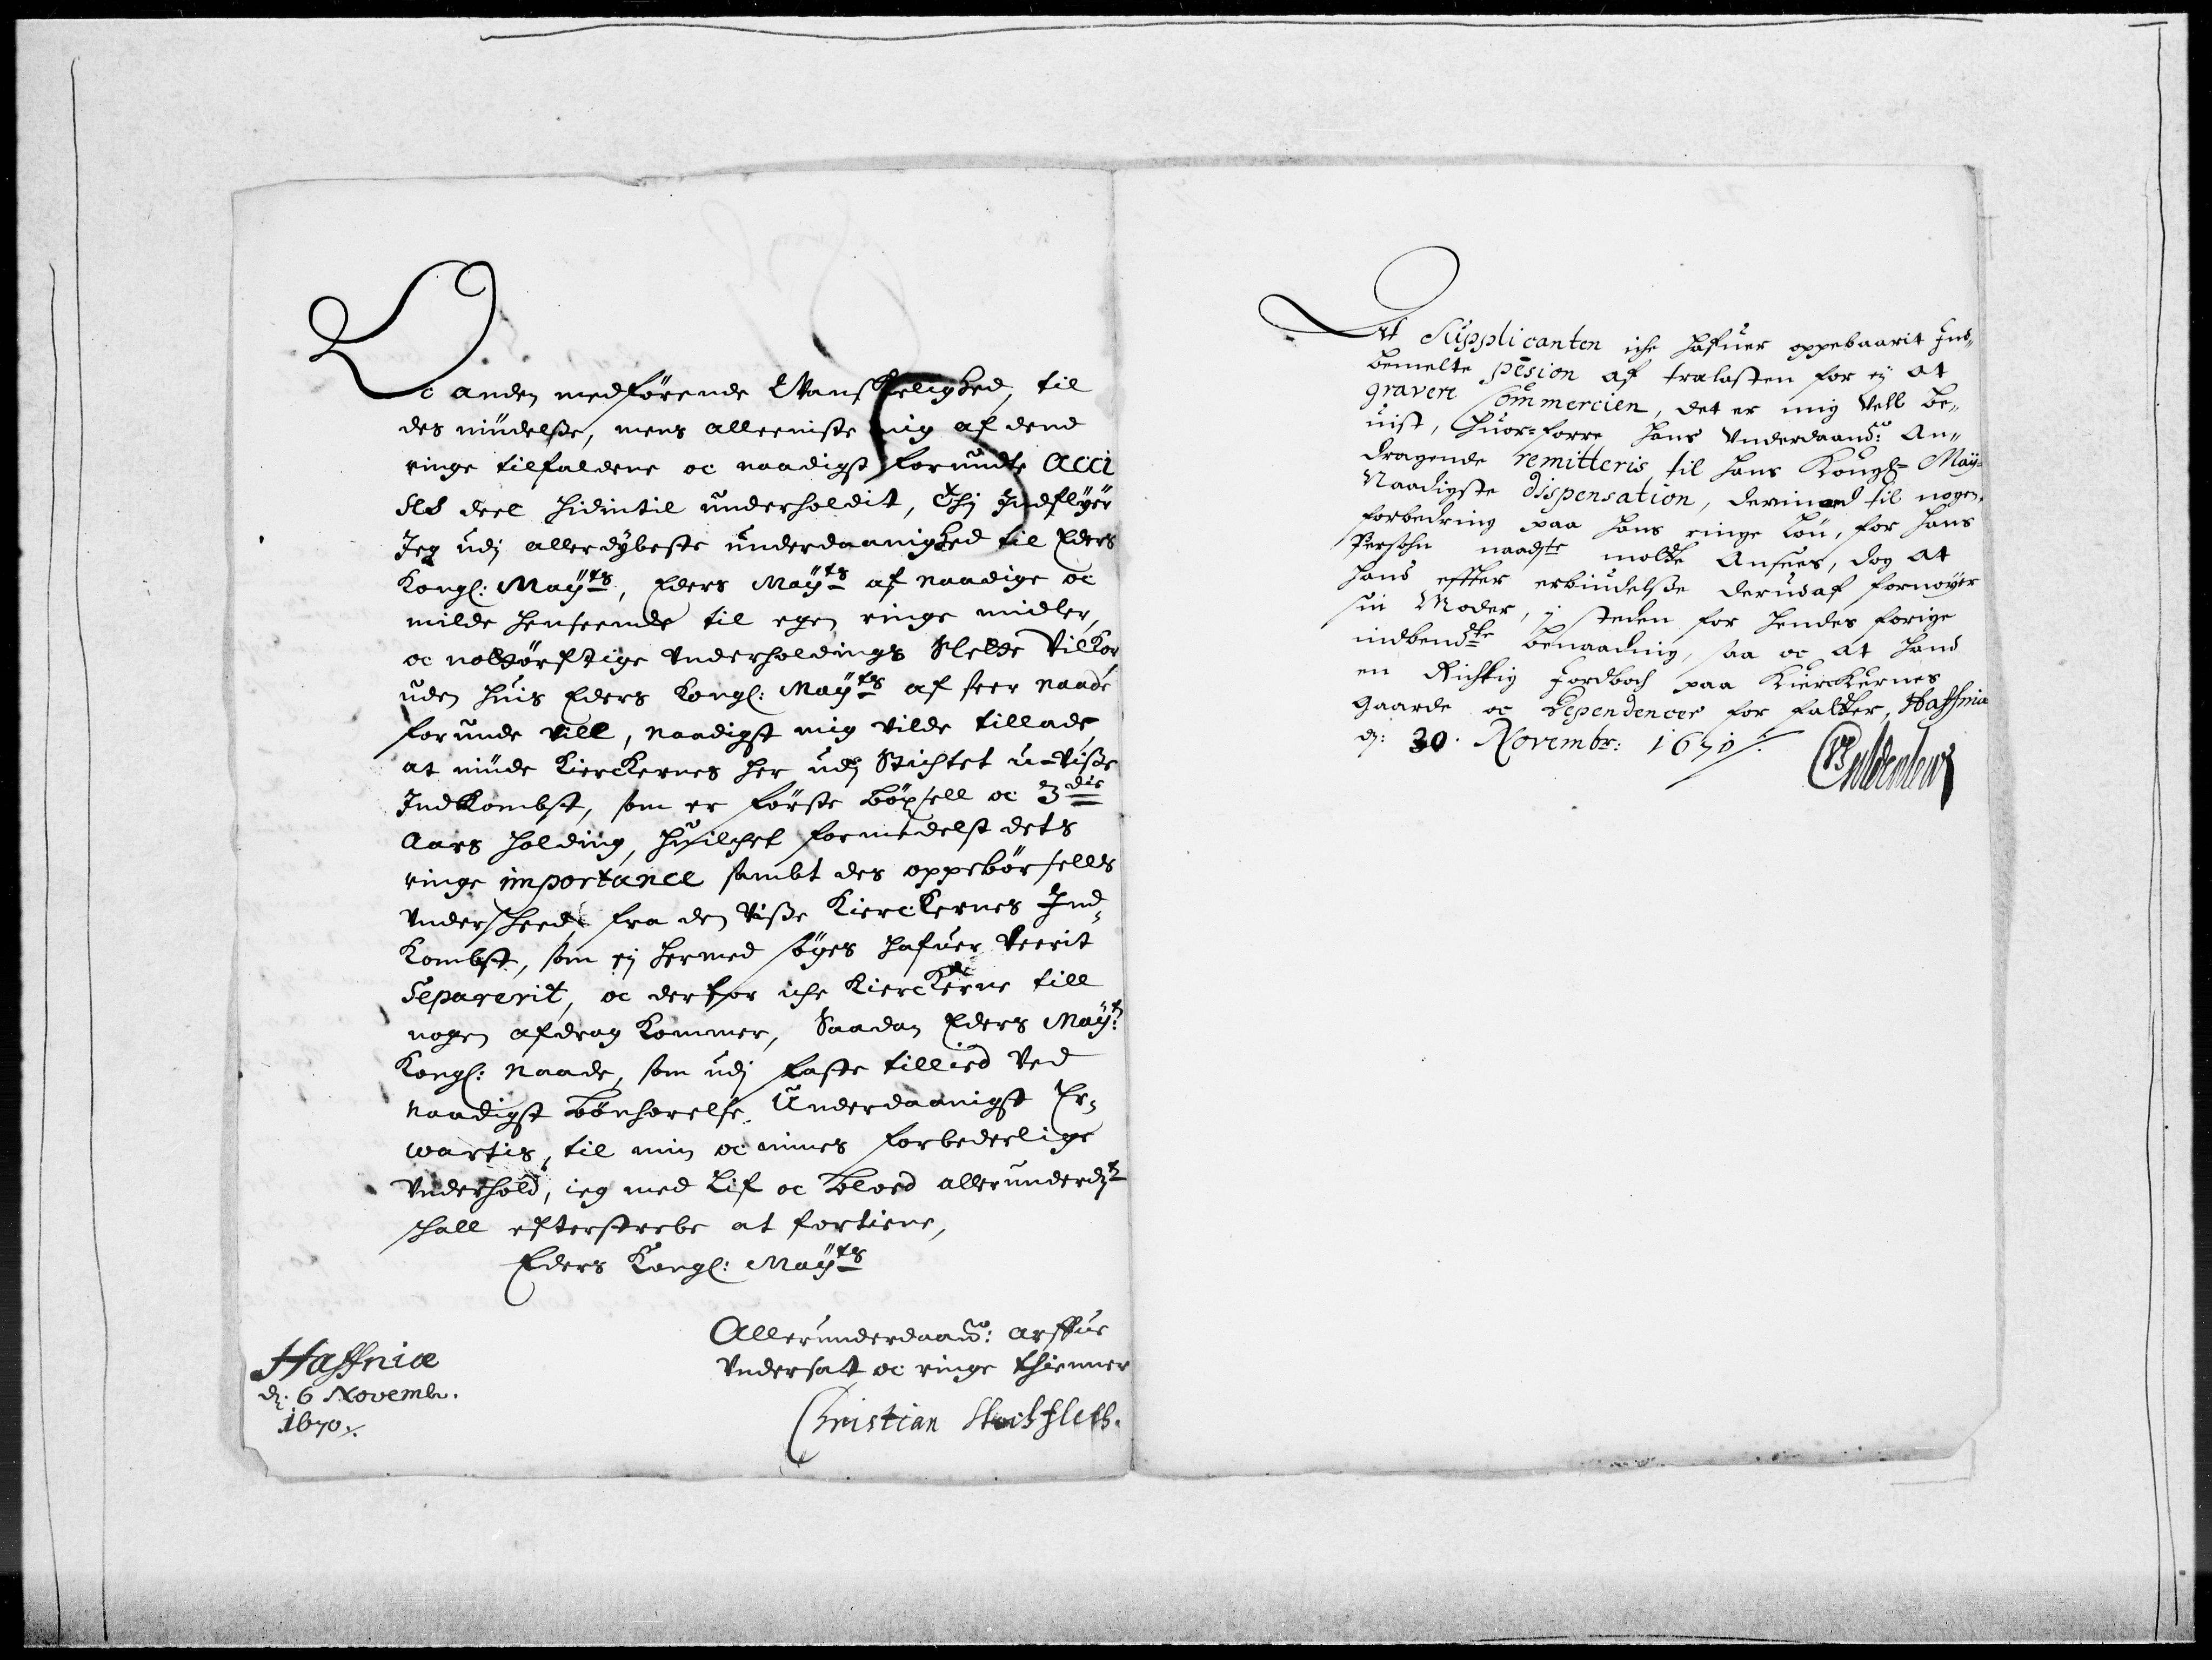 Oc anden medförende Wanskelighed, til
des niudelße, mens alleeniste mig af dend
ringe tilfaldene oc naadigst forundte Acci
deel hidintil underholdit, Thj Indflyer
Jeg udj allerdybeste underdaanighed til Eders
Kongl: Mayts, Eders Mayts af naadige oc
milde henseende til egen ringe midler,
oc nottörftige Vnderholdings Slette Vilkor
uden huis Eders Kongl: Mayts af seer naade
forunde vill, naadigst mig vilde tillade,
at niude Kierckernes her udj Stichtet u-viße
Indkombst, som er förste böxsell oc 3die
Aars holding, huilchet formedelst dets
ringe importance sambt des oppebörsells
Vnderskeed fra den viße Kierckernes Ind¬
kombst, som ej hermed söges hafuer veerit
Separerit, oc derfor iche Kierckerne till
nogen afdrag kommer, Saadan Eders Mayts
Kongl: Naade, som udj faste tillied ved
naadigst bönhörelse Underdaanigst Er¬
wartis, til min oc mines forbederlige
Vnderhold, ieg med Lif oc bloed allerunderdst
skall efterstrebe at fortiene,
Eders Kongl: Mayts
Allerunderdaanst: arffue
Vndersatt oc ringe thienner
Christian Stockfleth.
Haffniæ
dj. 6 Novembr.
1670.
At Supplicanten iche hafuer oppebaarit Ind„
bemelte pension af tralasten for ej at
gravere Commercien, det er mig vell be„
uist, huor-forre hans Vnderdaanst: An„
dragende remitteris til hans Kongl= May=
Naadigste dispensation, derimod til nogen
forbedring paa hans ringe Lön, for hans
Persohn naadste motte Ansees, dog at
hand effter erbiudelße derudaf fornöyer
sin Moder, j steden for hendes forige
indbemdte benaading, saa oc at hand
en Richtig Jordboch paa Kierckernes
gaarde oc Dependencer for fatter, Haffnia
dj: 30. Novembr: 1670/.
Gyldenlew